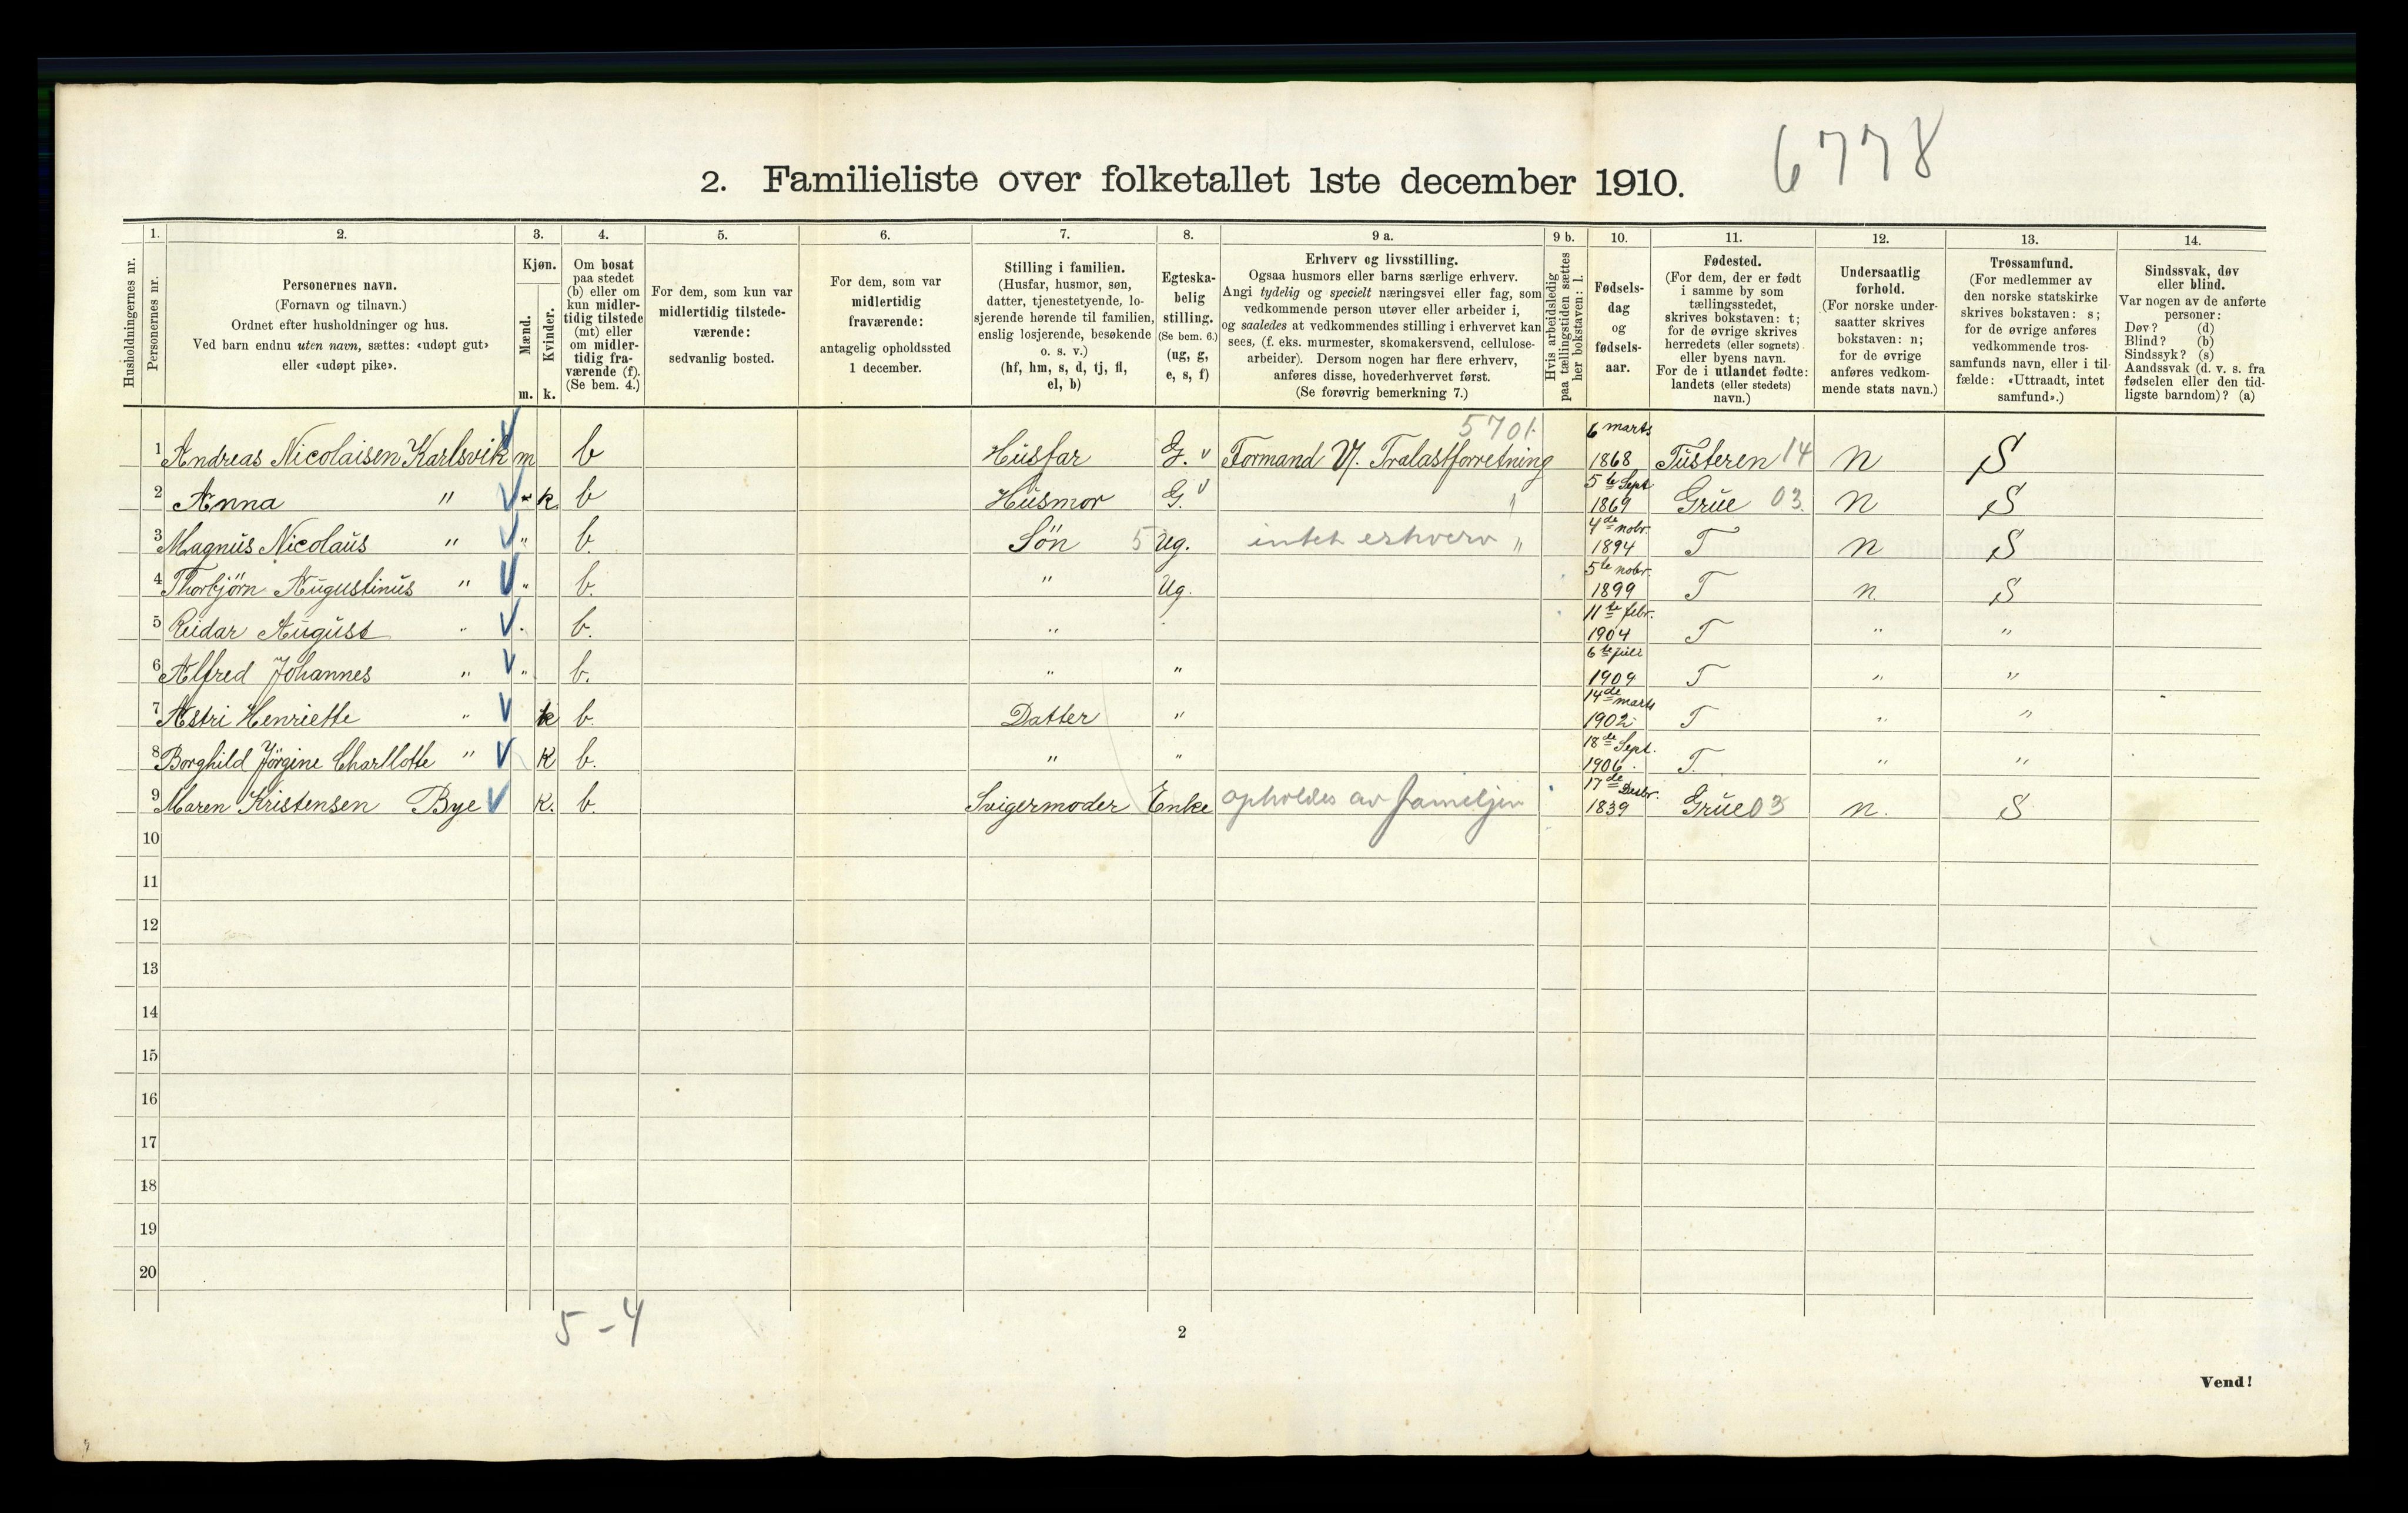 6778
2. Familieliste over folketallet 1ste december 1910.
Husholdningernes nr.
1. Personernes nr.
2. Personernes navn.
(Fornavn og tilnavn.)
Ordnet efter husholdninger og hus.
Ved barn endnu uten navn, sættes: «udøpt gut»
eller «udøpt pike».
3. Kjøn.
Mænd. m.
Kvinder. k.
4. Om bosat
paa stedet
(b) eller om
kun midler-
tidig tilstede
(mt) eller
om midler-
tidig fra-
værende (f).
(Se bem. 4.)
5. For dem, som kun var
midlertidig tilstede-
værende:
sedvanlig bosted.
6. For dem, som var
midlertidig
fraværende:
antagelig opholdssted
1 december.
7. Stilling i familien.
(Husfar, husmor, søn,
datter, tjenestetyende, lo-
sjerende hørende til familien,
enslig losjerende, besøkende
o. s. v.)
(hf, hm, s, d, tj, fl,
el, b)
8. Egteska-
belig
stilling.
(Se bem. 6.)
(ug, g,
e, s, f)
9 a. Erhverv og livsstilling.
Ogsaa husmors eller barns særlige erhverv.
Angi tydelig og specielt næringsvei eller fag, som
vedkommende person utøver eller arbeider i,
og saaledes at vedkommendes stilling i erhvervet kan
sees, (f. eks. murmester, skomakersvend, cellulose-
arbeider). Dersom nogen har flere erhverv,
anføres disse, hovederhvervet først.
(Se forøvrig bemerkning 7.)
9 b. Hvis arbeidsledig
paa tællingstiden sættes
her bokstaven: l.
10. Fødsels-
dag
og
fødsels-
aar.
11. Fødested.
(For dem, der er født
i samme by som
tællingsstedet,
skrives bokstaven: t;
for de øvrige skrives
herredets (eller sognets)
eller byens navn.
For de i utlandet fødte:
landets (eller stedets)
navn.)
12. Undersaatlig
forhold.
(For norske under-
saatter skrives
bokstaven: n;
for de øvrige
anføres vedkom-
mende stats navn.)
13. Trossamfund.
(For medlemmer av
den norske statskirke
skrives bokstaven: s;
for de øvrige anføres
vedkommende tros-
samfunds navn, eller i til-
fælde: «Uttraadt, intet
samfund».)
14. Sindssvak, døv
eller blind.
Var nogen av de anførte
personer:
Døv? (d)
Blind? (b)
Sindssyk? (s)
Aandssvak (d. v. s. fra
fødselen eller den tid-
ligste barndom)? (a)
5701
1 Andreas Nicolaisen Karlsvik m b Husfar G. v Formand V/. Tralastforretning 6 marts 1868 Tusteren 14 n S
2 Anna " k b Husmor G. v 5te Sept 1869 Grue 03. n S
3 Magnus Nicolaus " " b. Søn 5 Ug. intet erhverv " 4de nobr. 1894 T n S
4 Thorbjørn Augustinus " " b. " Ug. 5te nobr. 1899 T n. S
5 Reidar August " " b. " " 11te febr. 1904 T " "
6 Alfred Johannes " " b. " " 6te juli 1909 T " "
7 Astri Henriette " k b. Datter " 14de marts 1902 T " "
8 Borghild Jørgine Charllotte " k b. " " 18de Sept. 1906. T. " "
9 Maren Kristensen Bye k. b. Svigermoder Enke opholdes av familjen 17de Desbr. 1839 Grue 03 n. S
10
11
12
13
14
15
16
17
18
19
20
5-4
2
Vend!